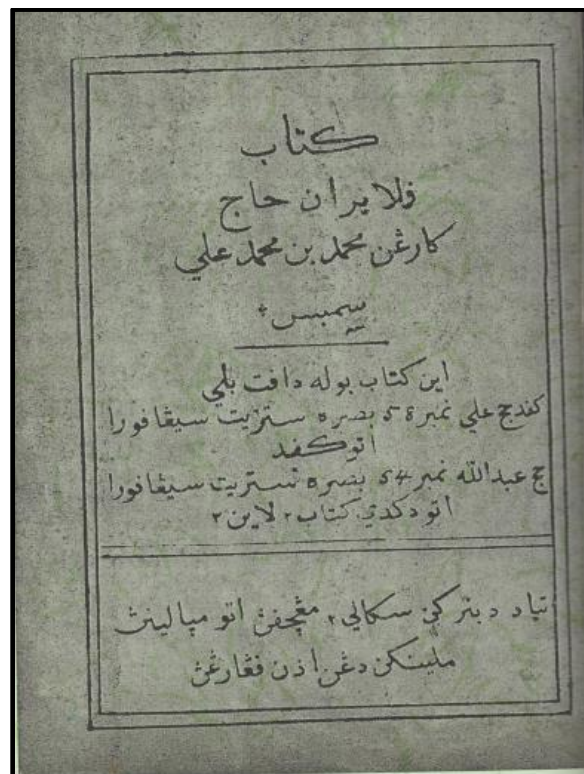 كتاب
ڤلايران حاج
كارڠن محمد بن محمد علي
سمبس
اين كتاب بوله داڤت بلي
كڤد حج علي نمبر 58 بصره ستريت سيڠاڤورا
اتو كڤد
حج عبدالله نمبر 54 بصره ستريت سيڠاڤورا
اتو دكدي كتاب٢ لاين٢
تياد دبنركن سكالي٢ مڠچڤڽ اتو مڽالينڽ
ملينكن دڠن اذن ڤڠارڠڽ